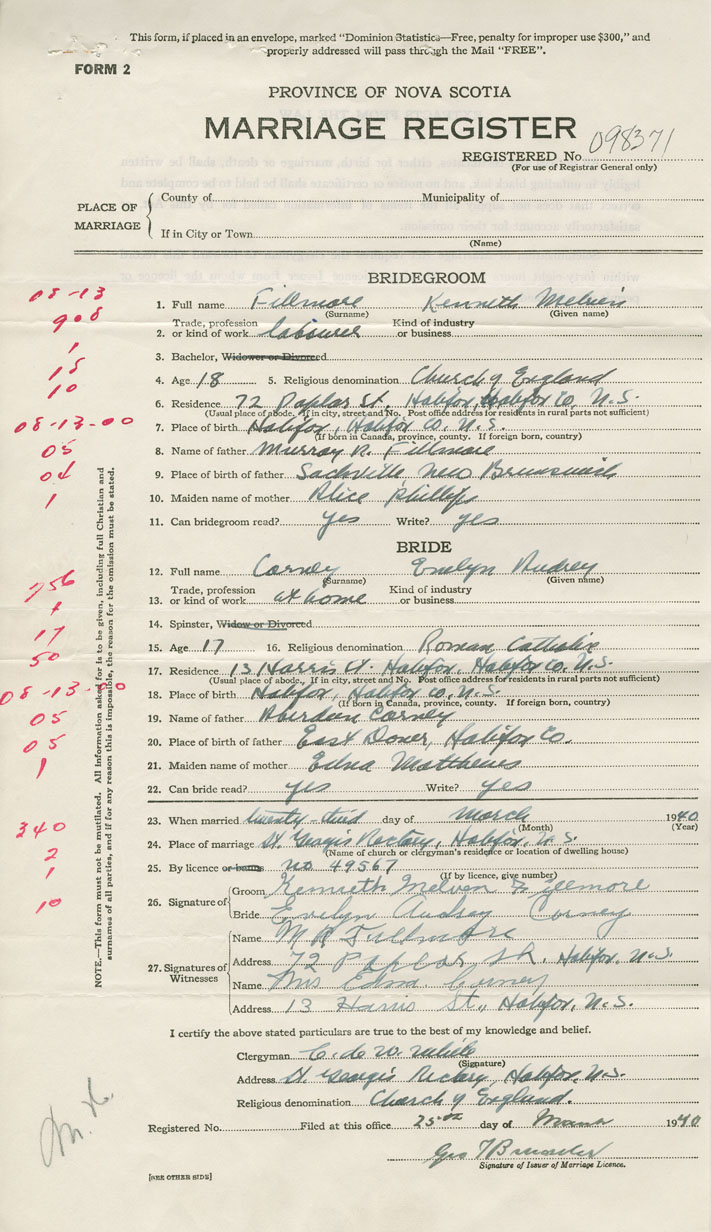 This form, if placed in an envelope, marked "Dominion Statistics—Free, penalty for improper use $300," and
properly addressed will pass through the Mail "FREE".
FORM 2
PROVINCE OF NOVA SCOTIA
MARRIAGE REGISTER
REGISTERED No. 098371
(For use of Registrar General only)
PLACE OF MARRIAGE
County of Municipality of
If in City or Town
(Name)
BRIDEGROOM
08-13
1. Full name Fillmore Kenneth Melvin
(Surname) (Given name)
908
Trade, profession Kind of industry
2. or kind of work labourer or business
1
3. Bachelor, Widower or Divorced
15
4. Age 18 5. Religious denomination Church of England
10
6. Residence 72 Poplar St. Halifax, Halifax Co. N.S.
(Usual place of abode. If in city, street and No. Post office address for residents in rural parts not sufficient)
08-13-00
7. Place of birth Halifax, Halifax Co. N.S.
(If born in Canada, province, county. If foreign born, country)
05
8. Name of father Murray R. Fillmore
04
9. Place of birth of father Sackville, New Brunswick
1
10. Maiden name of mother Alice Phillips
11. Can bridegroom read? yes Write? yes
BRIDE
12. Full name Corney Evelyn Audrey
(Surname) (Given name)
756
Trade, profession Kind of industry
13. or kind of work at home or business
14. Spinster, Widow or Divorced
17
15. Age 17 16. Religious denomination Roman Catholic
50
17. Residence 13 Harris St. Halifax, Halifax Co. N.S.
(Usual place of abode. If in city, street and No. Post office address for residents in rural parts not sufficient)
08-13-00
18. Place of birth Halifax, Halifax Co. N.S.
(If Born in Canada, province, county. If foreign born, country)
05
19. Name of father Aberdeen Corney
05
20. Place of birth of father East Dover, Halifax Co.
1
21. Maiden name of mother Edna Matthews
22. Can bride read? yes Write? yes
23. When married twenty-third day of March 1940
(Month) (Year)
340
24. Place of marriage St. Georges Rectory, Halifax, N.S.
(Name of church or clergyman's residence or location of dwelling house)
2
25. By licence or banns no 49567
(If by licence, give number)
1
26. Signature of
Groom Kenneth Melven Fillmore
10
Bride Evelyn Audrey Corney
27. Signatures of Witnesses
Name M R Fillmore
Address 72 Poplar St. Halifax, N.S.
Name Mrs Edna Corney
Address 13 Harris St., Halifax, N.S.
I certify the above stated particulars are true to the best of my knowledge and belief.
Clergyman C. de W. White
(Signature)
Address St. Georges Rectory, Halifax, N.S.
Religious denomination Church of England.
Registered No. Filed at this office 25 day of March 1940
Geo
Signature of Issuer of Marriage Licence.
[SEE OTHER SIDE]
NOTE.—This form must not be mutilated. All information asked for is to be given, including full Christian and
surnames of all parties, and if for any reason this is impossible, the reason for the omission must be stated.